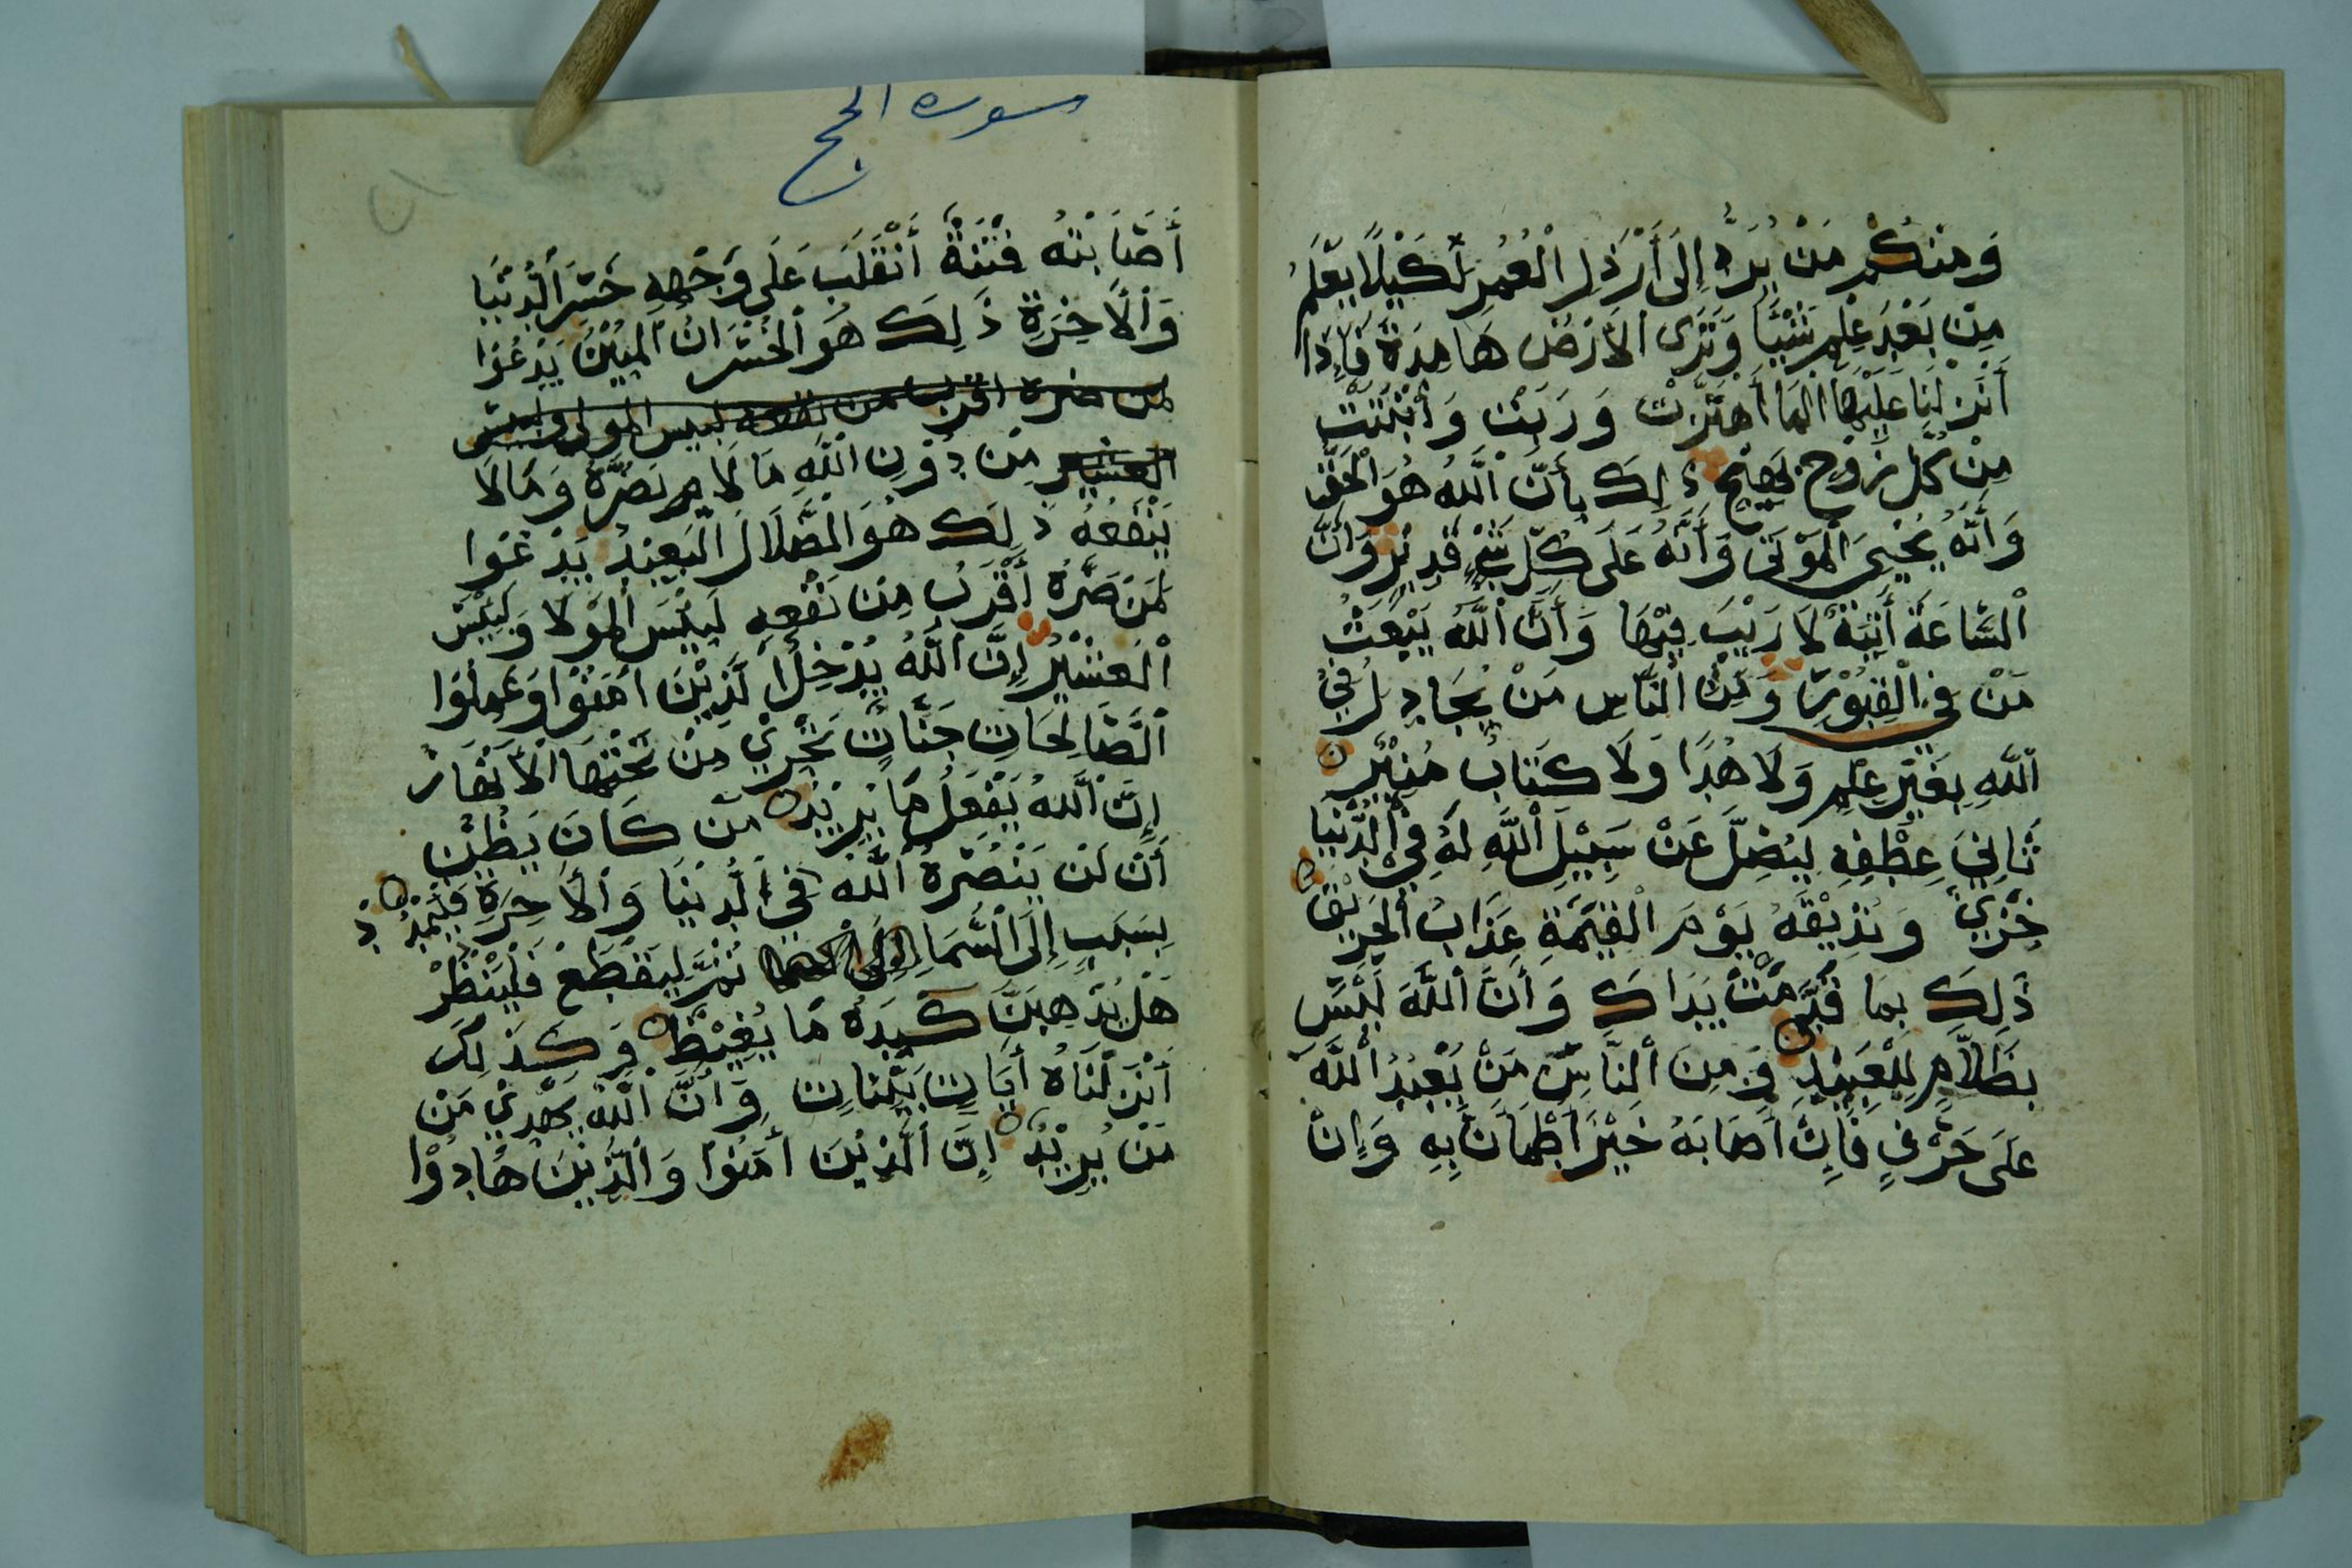 وَمِنْكُمْ مَنْ يُرَدُّ إِلَى أَرْذَلِ الْعُمُرِ لِكَيْلَا يَعْلَمَ
مِنْ بَعْدِ عِلْمٍ شَيْئًا وَتَرَى الْأَرْضَ هَامِدَةً فَإِذَا
أَنْزَلْنَا عَلَيْهَا الْمَا أَهْتَزَّتْ وَرَبَتْ وَأَنْبَتَتْ
مِنْ كُلِّ زَوْجٍ بَهِيْجٍ ذَلِكَ بِأَنَّ اللَّهَ هُوَ الْحَقُّ
وَأَنَّهُ يُحْيِيَ الْمَوْتَى وَأَنَّهُ عَلَى كُلِّ شَيْءٍ قَدِيْرٌ وَأَنَّ
السَّاعَةَ أَتِيَةٌ لَا رَيْبَ فِيْهَا وَأَنَّ اللَّهَ يَبْعَثُ
مَنْ فِي الْقُبُوْرِ وَمِنَ النَّاسِ مَنْ يُجَادِلُ فِيْ
اللَّهِ بِغَيْرِ عِلْمٍ وَلَا هُدًا وَلَا كِتَابٍ مُنِيْرٍ
ثَانِيَ عِطْفِهِ لِيُضِلَّ عَنْ سَبِيْلِ اللَّهِ لَهُ فِيْ الدُّنْيَا
خِزْيٌ وَنُذِيْقُهُ يَوْمَ الْقِيَمَةِ عَذَابَ الْحَرِيْقِ
ذَلِكَ بِمَا قَدَّمَتْ يَدَاكَ وَأَنَّ اللَّهَ لَيْسَ
بِظَلَّامٍ لِلْعَبِيْدِ وَمِنَ النَّاسِ مَنْ يَعْبُدُ اللَّهَ
عَلَى حَرْفٍ فَإِنْ أَصَابَهُ خَيْرٌ أطْمَأَنَّ بِهِ وَإِنْ
سوره الحج
أَصَابَتْهُ فِتْنَةٌ أَنْقَلَبَ عَلَى وَجْهِهِ خَسِرَ الدُّنْيَا
وَالْأَخِرَةِ ذَلِكَ هُوَ الْخُسْرَانُ الْمُبِيْنُ يَدْعُوْا
لمن ضره اقرب من نفعه لبيس المولى ولبيس
العشير مِنْ دُوْنِ اللَّهِ مَا لَا يَضُرُّهُ وَمَا لَا
يَنْفَعُهُ ذَلِكَ هُوَ الضَّلَالَ الْبَعِيْدُ يَدْعُوا
لَمَنْ ضَرُّهُ أَقْرَبُ مِنْ نَفْعِهِ لَبِيْسَ الْمَوْلَا وَلَبِيْسَ
الْعَشِيْرُ إِنَّ اللَّهَ يُدْخِلُ الَّذِيْنَ امَنُوْا وَعَمِلُوْا
الصَّالِحَاتِ جَنَّاتٍ تَجْرِيْ مِنْ تَحْتِهَا الْأَنْهَارُ
إِنَّ اللَّهَ يَفْعَلُ مَا يُرِيْدُ مَنْ كَانَ يَظُنُّ
أَنْ لَنْ يَنْصُرَهُ اللَّهُ فِيْ الدُّنْيَا وَالْأَخِرَةِ فَلْيَمْدُدْ
بِسَبَبٍ إِلَى السَّمَاِ ثُمَّ لِيَقْطَعْ فَلْيَنْظُرْ
هَلْ يُذْهِبَنَّ كَيْدَهُ مَا يَغِيْظُ وَكَذَلِكَ
أَنْزَلْنَاهُ أَيَاتٍ بَيِّنَاتٍ وَأَنَّ اللَّهَ يَهْدِيْ مَنْ
مَنْ يُرِيْدُ إِنَّ الَّذِيْنَ أمَنُوْا وَالَّذِيْنَ هَادُوْا